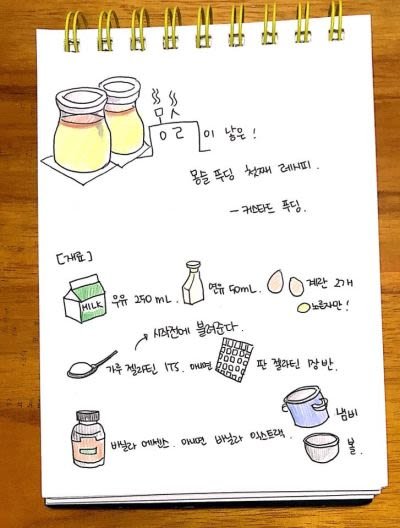 이 낳은!
몽슬 푸딩 첫째 레시피.
- 커스타드 푸딩.
[재료]
MILK 우유 250 mL. 연유 50mL. 계란 2개
노른자만!
시작전에 불려준다.
가루 젤라틴 1TS. 아니면 판 젤라틴 1장 반.
냄비
바닐라 에센스. 아니면 바닐라 익스트랙.
볼